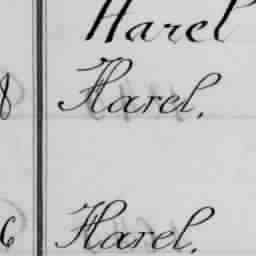 Harel
8 Harel.
6 Harel.